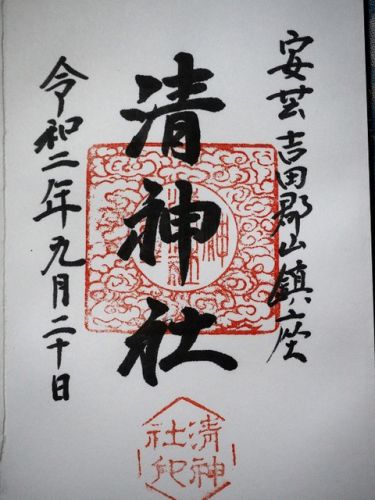 安芸吉田郡山鎮座
清神社
令和二年九月二十日
清神
社印